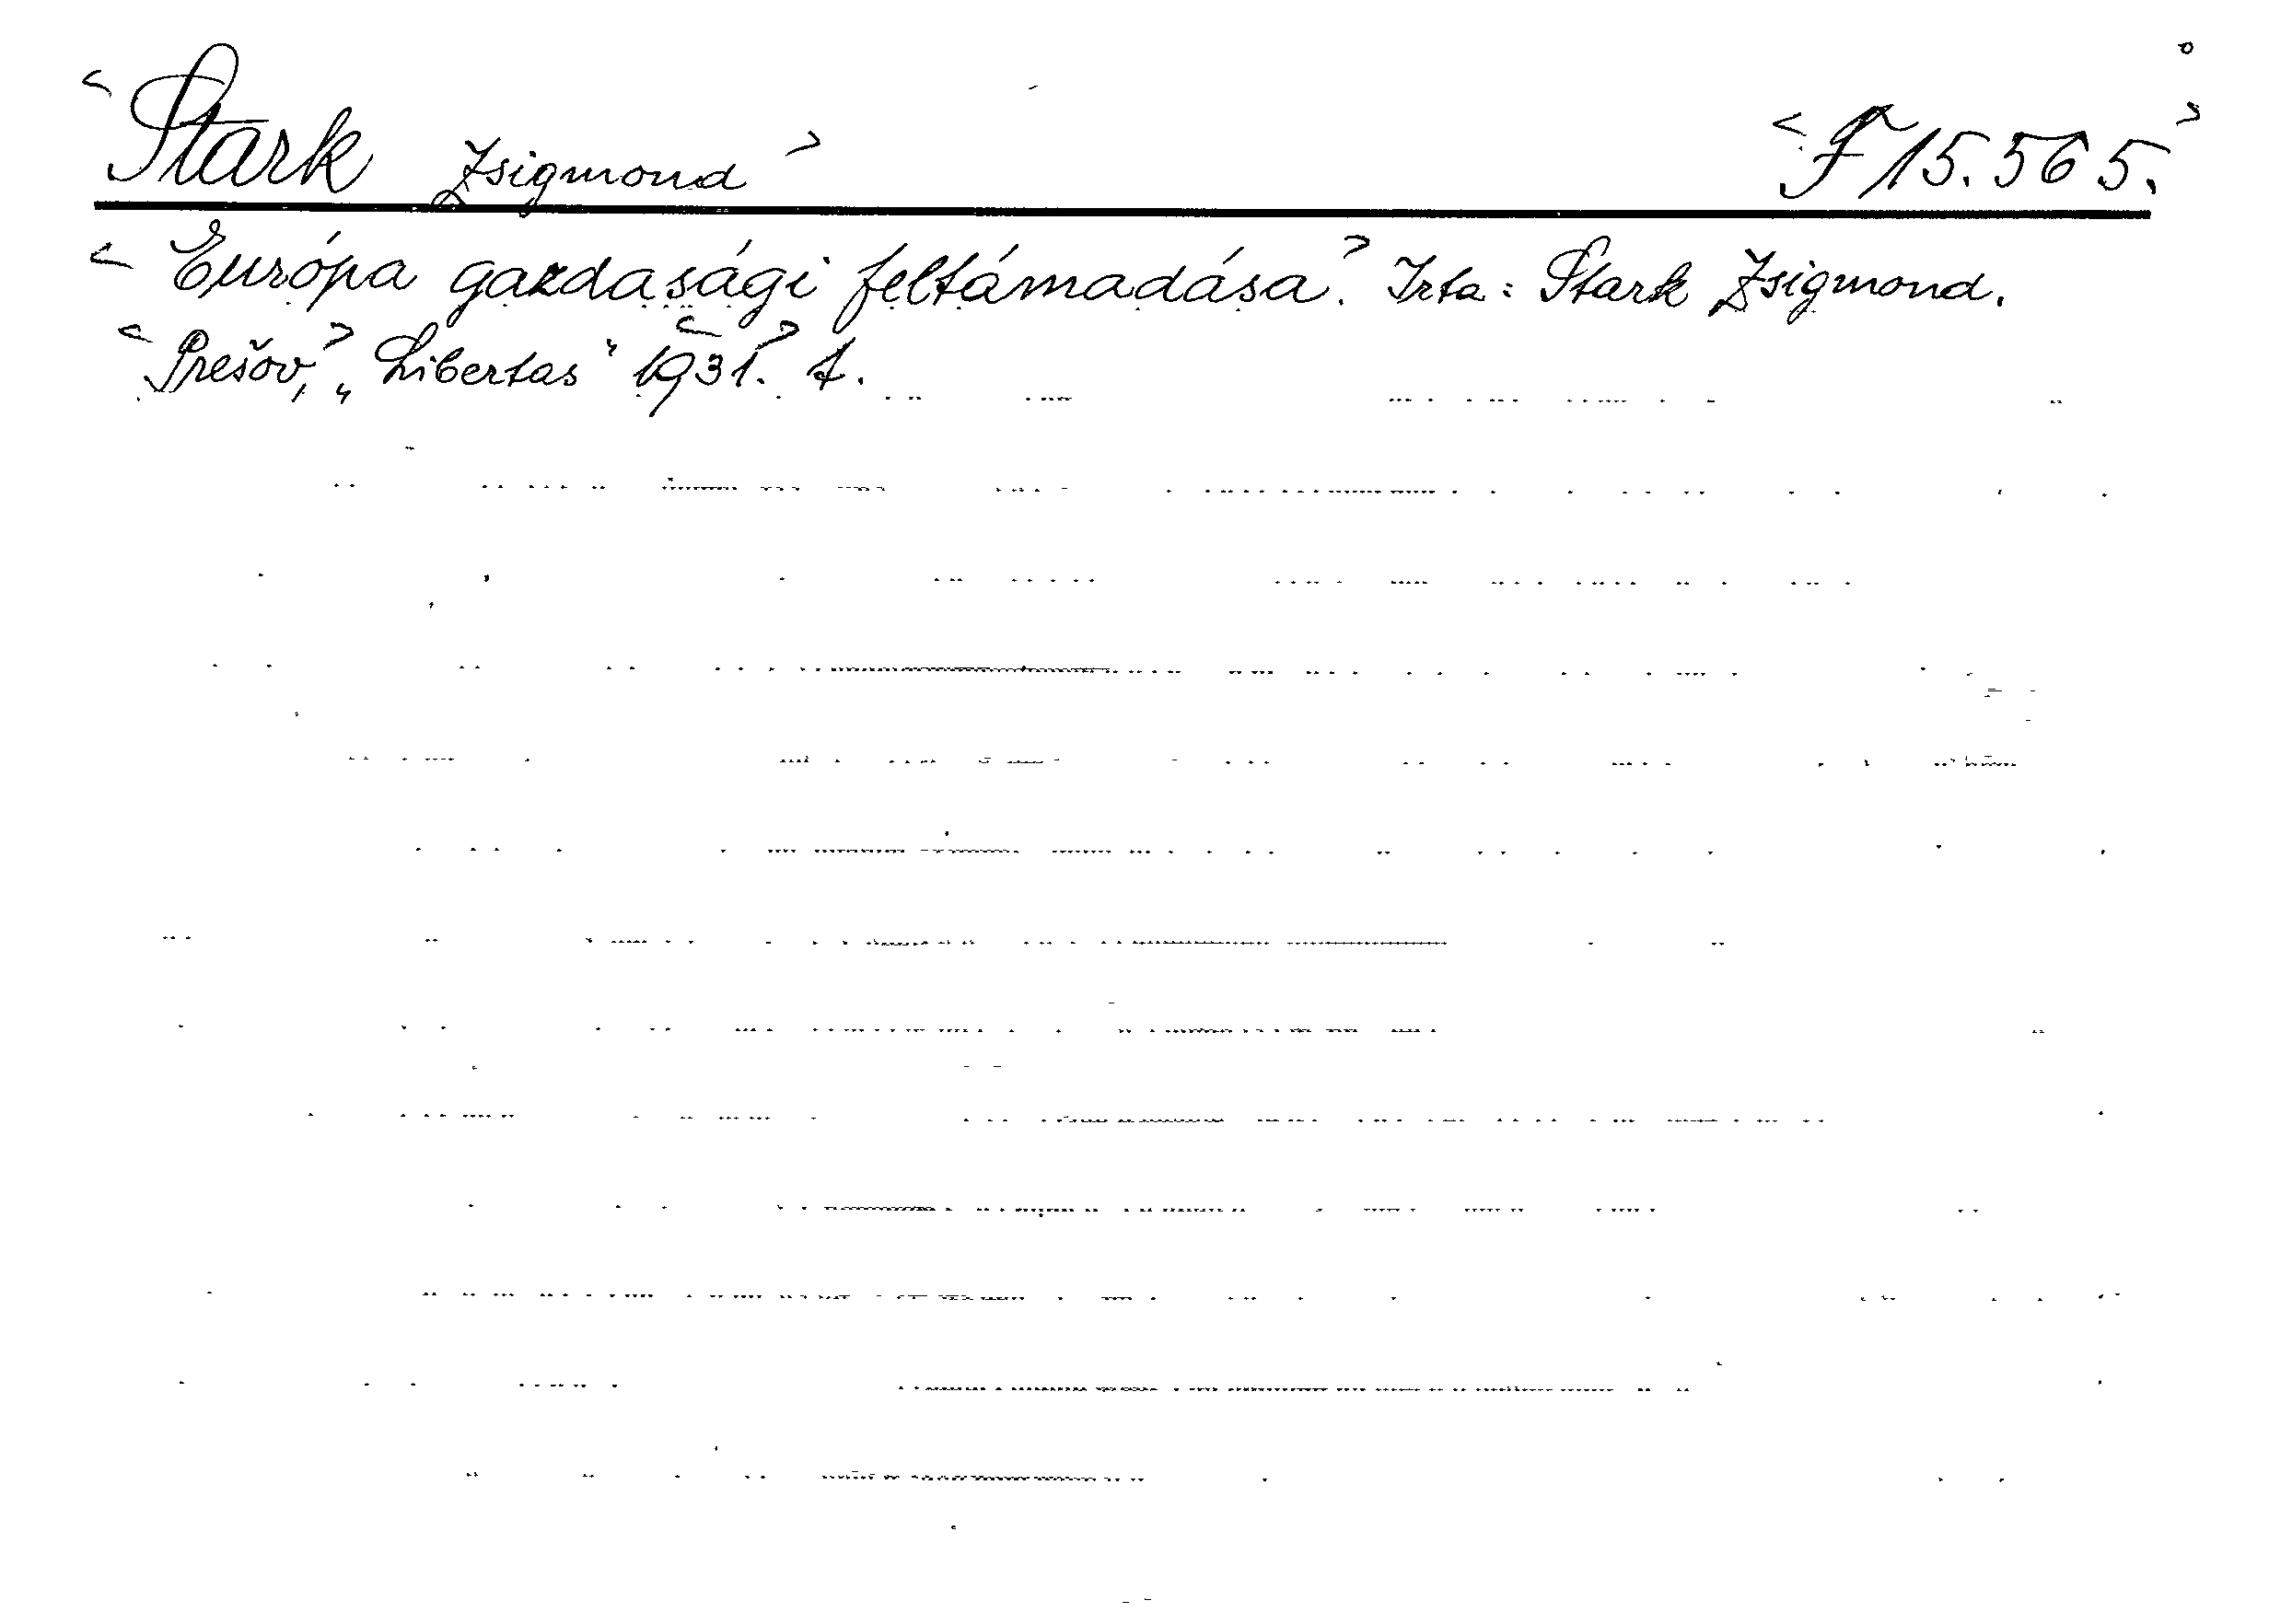 <Stark Zsigmond> <F 15.565.>
<Európa gazdasági feltámadása.> Irta: Stark Zsigmond.
<Prešov,> „Libertas“ <1931.>